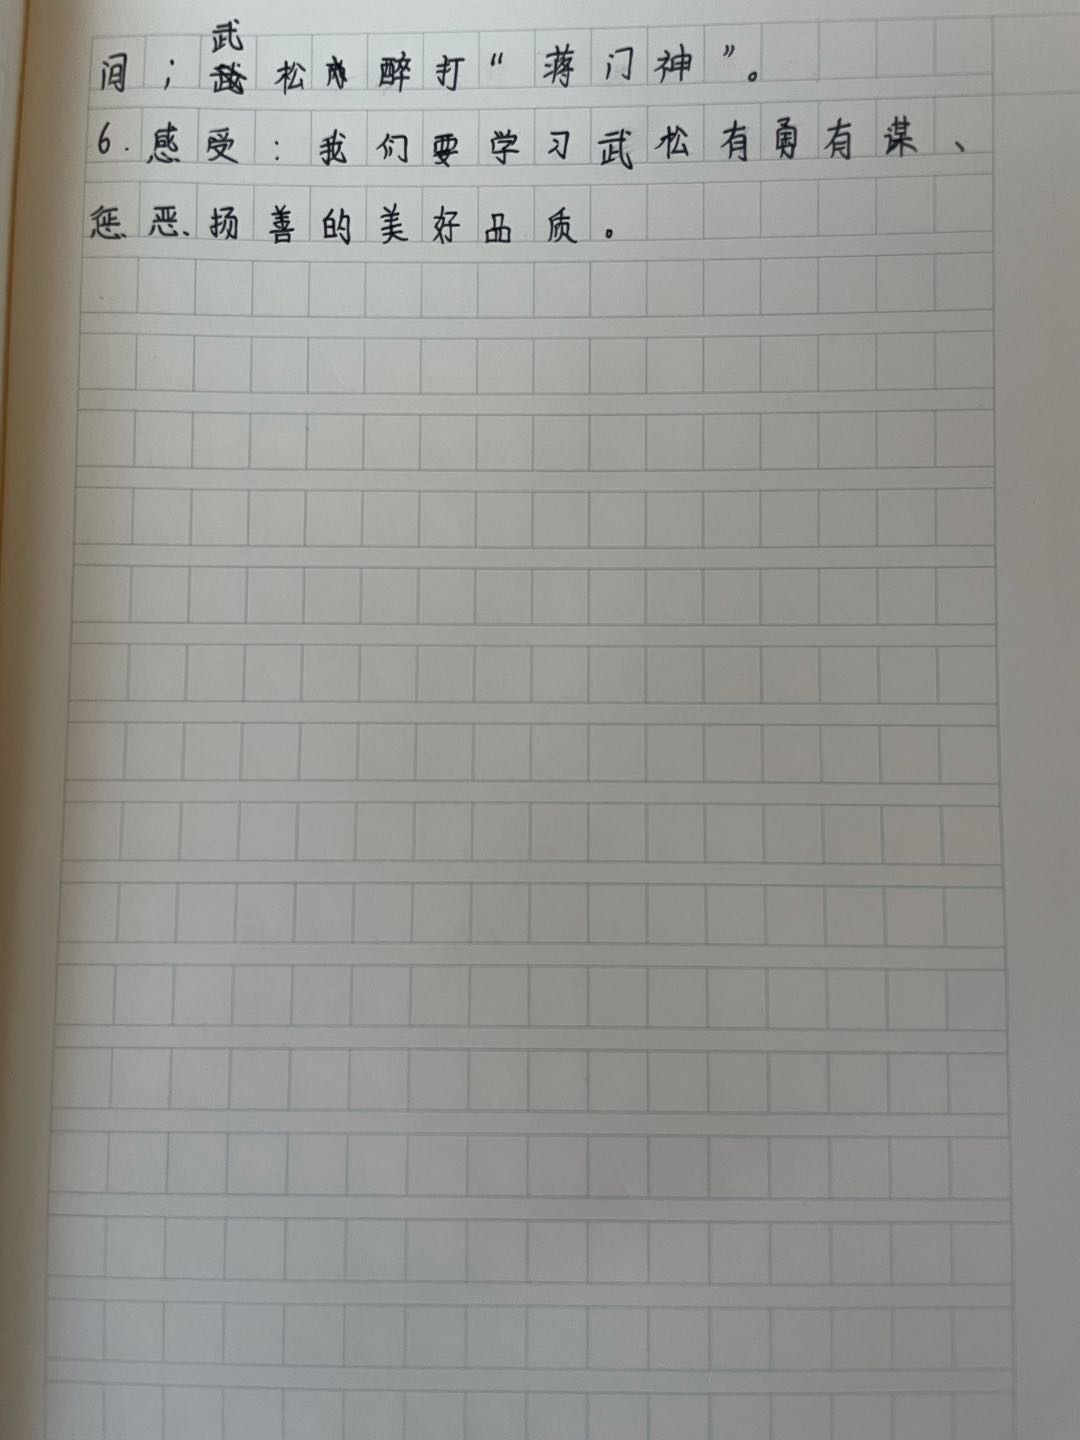 武
间；松醉打“蒋门神”。
6.感受：我们要学习武松有勇有谋、
惩恶、扬善的美好品质。